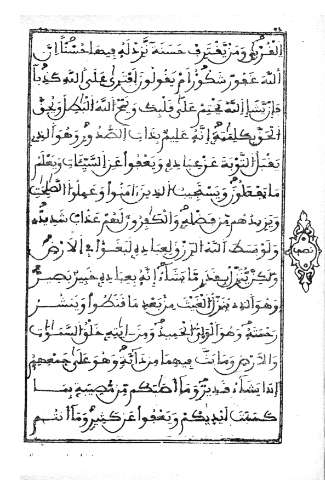 القربى ومن يقترف حسنة نزد له فيها حسنا ان
الله غفور شكور ام يقولون افترى على الله كذبا
فان يشا الله يختم على قلبك ويمح الله البطل ويحق
الحق بكلمته انه عليم بذات الصدور وهو الذي
يقبل التوبة عن عباده ويعفوا عن السيئات ويعلم
ما يفعلون ويستجيب الذين امنوا وعملوا الصلحت
ويزيدهم من فضله والكفرون لهم عذاب شديد
ولو بسط الله الرزق لعباده لبغوا في الارض
ولكن ينزل بقدر ما يشاء انه بعباده خبير بصير
وهو الذي ينزل الغيث من بعد ما قنطوا وينشر
رحمته وهو الولي الحميد ومن ايته خلق السموات
والارض وما بث فيهما من دابة وهو على جمعهم
اذا يشاء قدير وما اصبكم من مصيبة بما
كسبت ايديكم ويعفوا عن كثير وما انتم
نصف